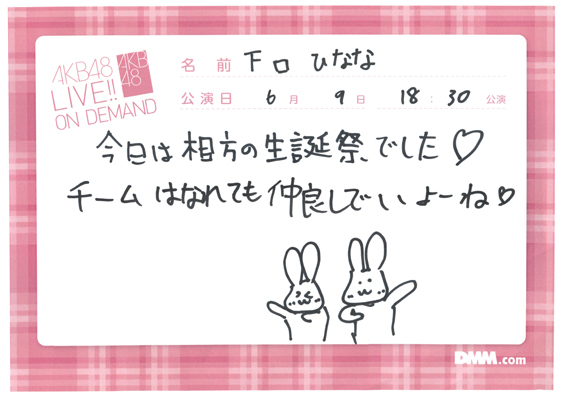 AKB48
LIVE!!
ON DEMAND
AKB
48
名前 下口ひなな
公演日 6月 9日 18:30 公演
今日は相方の生誕祭でした♡
チームはなれても仲良しでいよーね♡
DMM.com